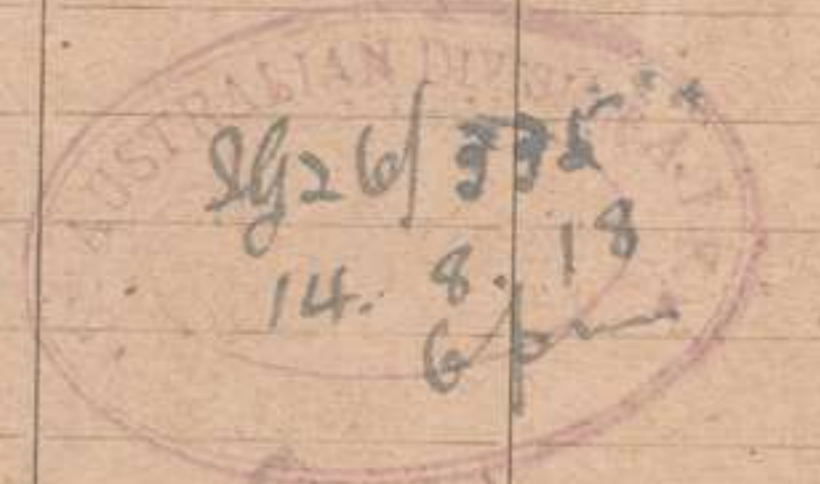 AUSTRALIAN DIVISION A.I.F.
SG26/
14. 8. 18
6pm